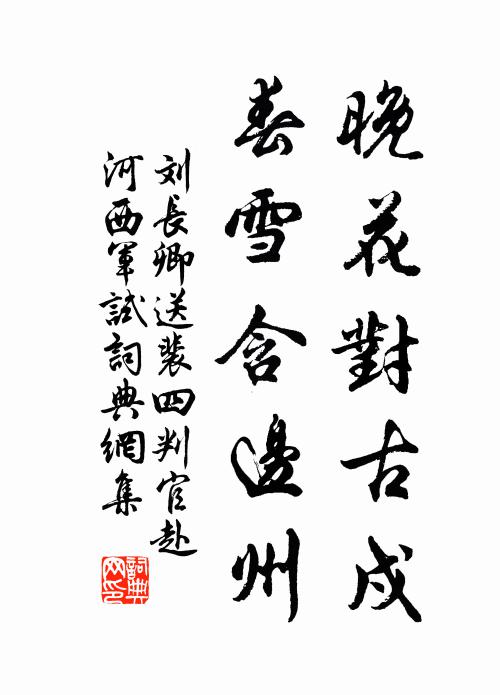 晚花對古戍
春雪含邊州
刘長卿送裴四判官赴
河西軍試詞典網集
詞典网印